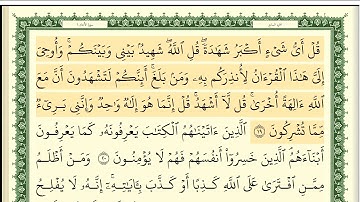 قُلْ أَىُّ شَىْءٍ أَكْبَرُ شَهَٰدَةً ۖ قُلِ ٱللَّهُ ۖ شَهِيدٌۢ بَيْنِى وَبَيْنَكُمْ ۚ وَأُوحِىَ
إِلَىَّ هَٰذَا ٱلْقُرْءَانُ لِأُنذِرَكُم بِهِۦ وَمَنۢ بَلَغَ ۚ أَئِنَّكُمْ لَتَشْهَدُونَ أَنَّ مَعَ
ٱللَّهِ ءَالِهَةً أُخْرَىٰ ۚ قُل لَّآ أَشْهَدُ ۚ قُلْ إِنَّمَا هُوَ إِلَٰهٌ وَٰحِدٌ وَإِنَّنِى بَرِىٓءٌ
مِّمَّا تُشْرِكُونَ ١٩ ٱلَّذِينَ ءَاتَيْنَٰهُمُ ٱلْكِتَٰبَ يَعْرِفُونَهُۥ كَمَا يَعْرِفُونَ
أَبْنَآءَهُمُ ۘ ٱلَّذِينَ خَسِرُوٓا۟ أَنفُسَهُمْ فَهُمْ لَا يُؤْمِنُونَ ٢٠ وَمَنْ أَظْلَمُ
مِمَّنِ ٱفْتَرَىٰ عَلَى ٱللَّهِ كَذِبًا أَوْ كَذَّبَ بِـَٔايَٰتِهِۦٓ ۗ إِنَّهُۥ لَا يُفْلِحُ